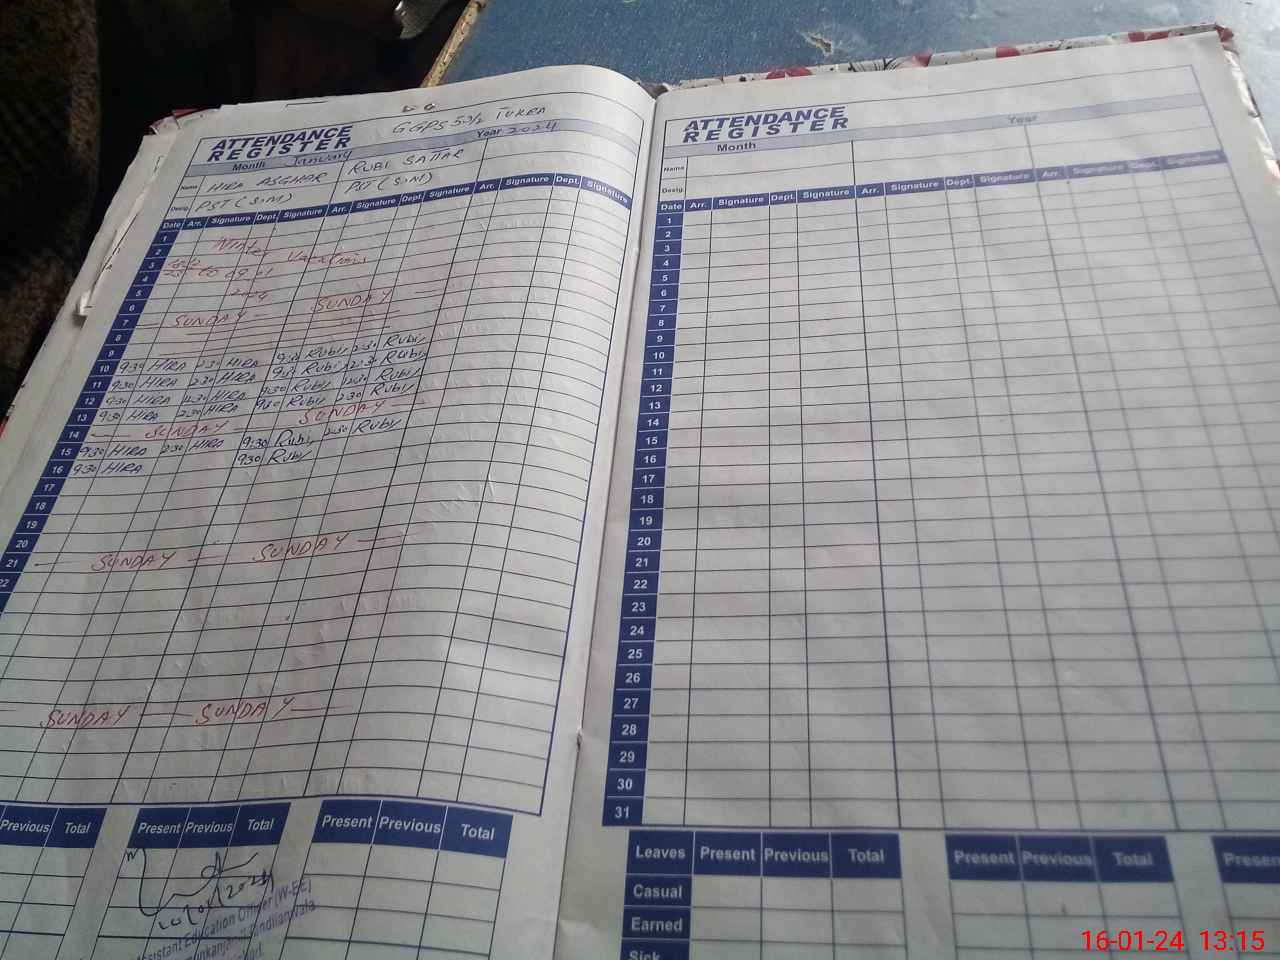 GGPS 52/2 TUKRA
ATTENDANCE
REGISTER
Month January Year 2024
Name HIRA ASGHAR RUBI SATTAR
Desig. PST (SIM) PST (SIM)
Date Arr. Signature Dept. Signature Arr. Signature Dept. Signature Arr. Signature Dept. Signature
1
2 Winter Vacations
3
4 to 09-01
5 2024
6
7 SUNDAY SUNDAY
8
9
10 9:30 HIRA 2:30 HIRA 9:30 Rubi 2:30 Rubi
11 9:30 HIRA 2:30 HIRA 9:30 Rubi 2:30 Rubi
12 9:30 HIRA 12:30 HIRA 9:30 Rubi 12:30 Rubi
13 9:30 HIRA 2:30 HIRA 9:30 Rubi 2:30 Rubi
14 SUNDAY SUNDAY
15 9:30 HIRA 2:30 HIRA 9:30 Rubi 2:30 Rubi
16 9:30 HIRA 9:30 Rubi
17
18
19
20
21 SUNDAY SUNDAY
22
SUNDAY SUNDAY
Previous Total Present Previous Total Present Previous Total
10/01/2024
Assistant Education Officer (W-EE)
ATTENDANCE
REGISTER
Month Year
Name
Desig.
Date Arr. Signature Dept. Signature Arr. Signature Dept. Signature Arr. Signature Dept. Signature
1
2
3
4
5
6
7
8
9
10
11
12
13
14
15
16
17
18
19
20
21
22
23
24
25
26
27
28
29
30
31
Leaves Present Previous Total Present Previous Total Present
Casual
Earned
Sick
16-01-24 13:15